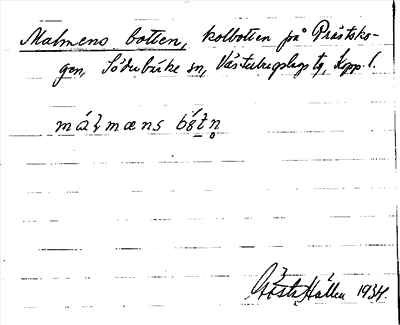 Malmens botten, kolbotten på Prästsko-
gen, Söderbärke sn, Västerbergslags tg, Kopp. l.
máꞎmæns bótn̥
Gösta Hallén 1934.